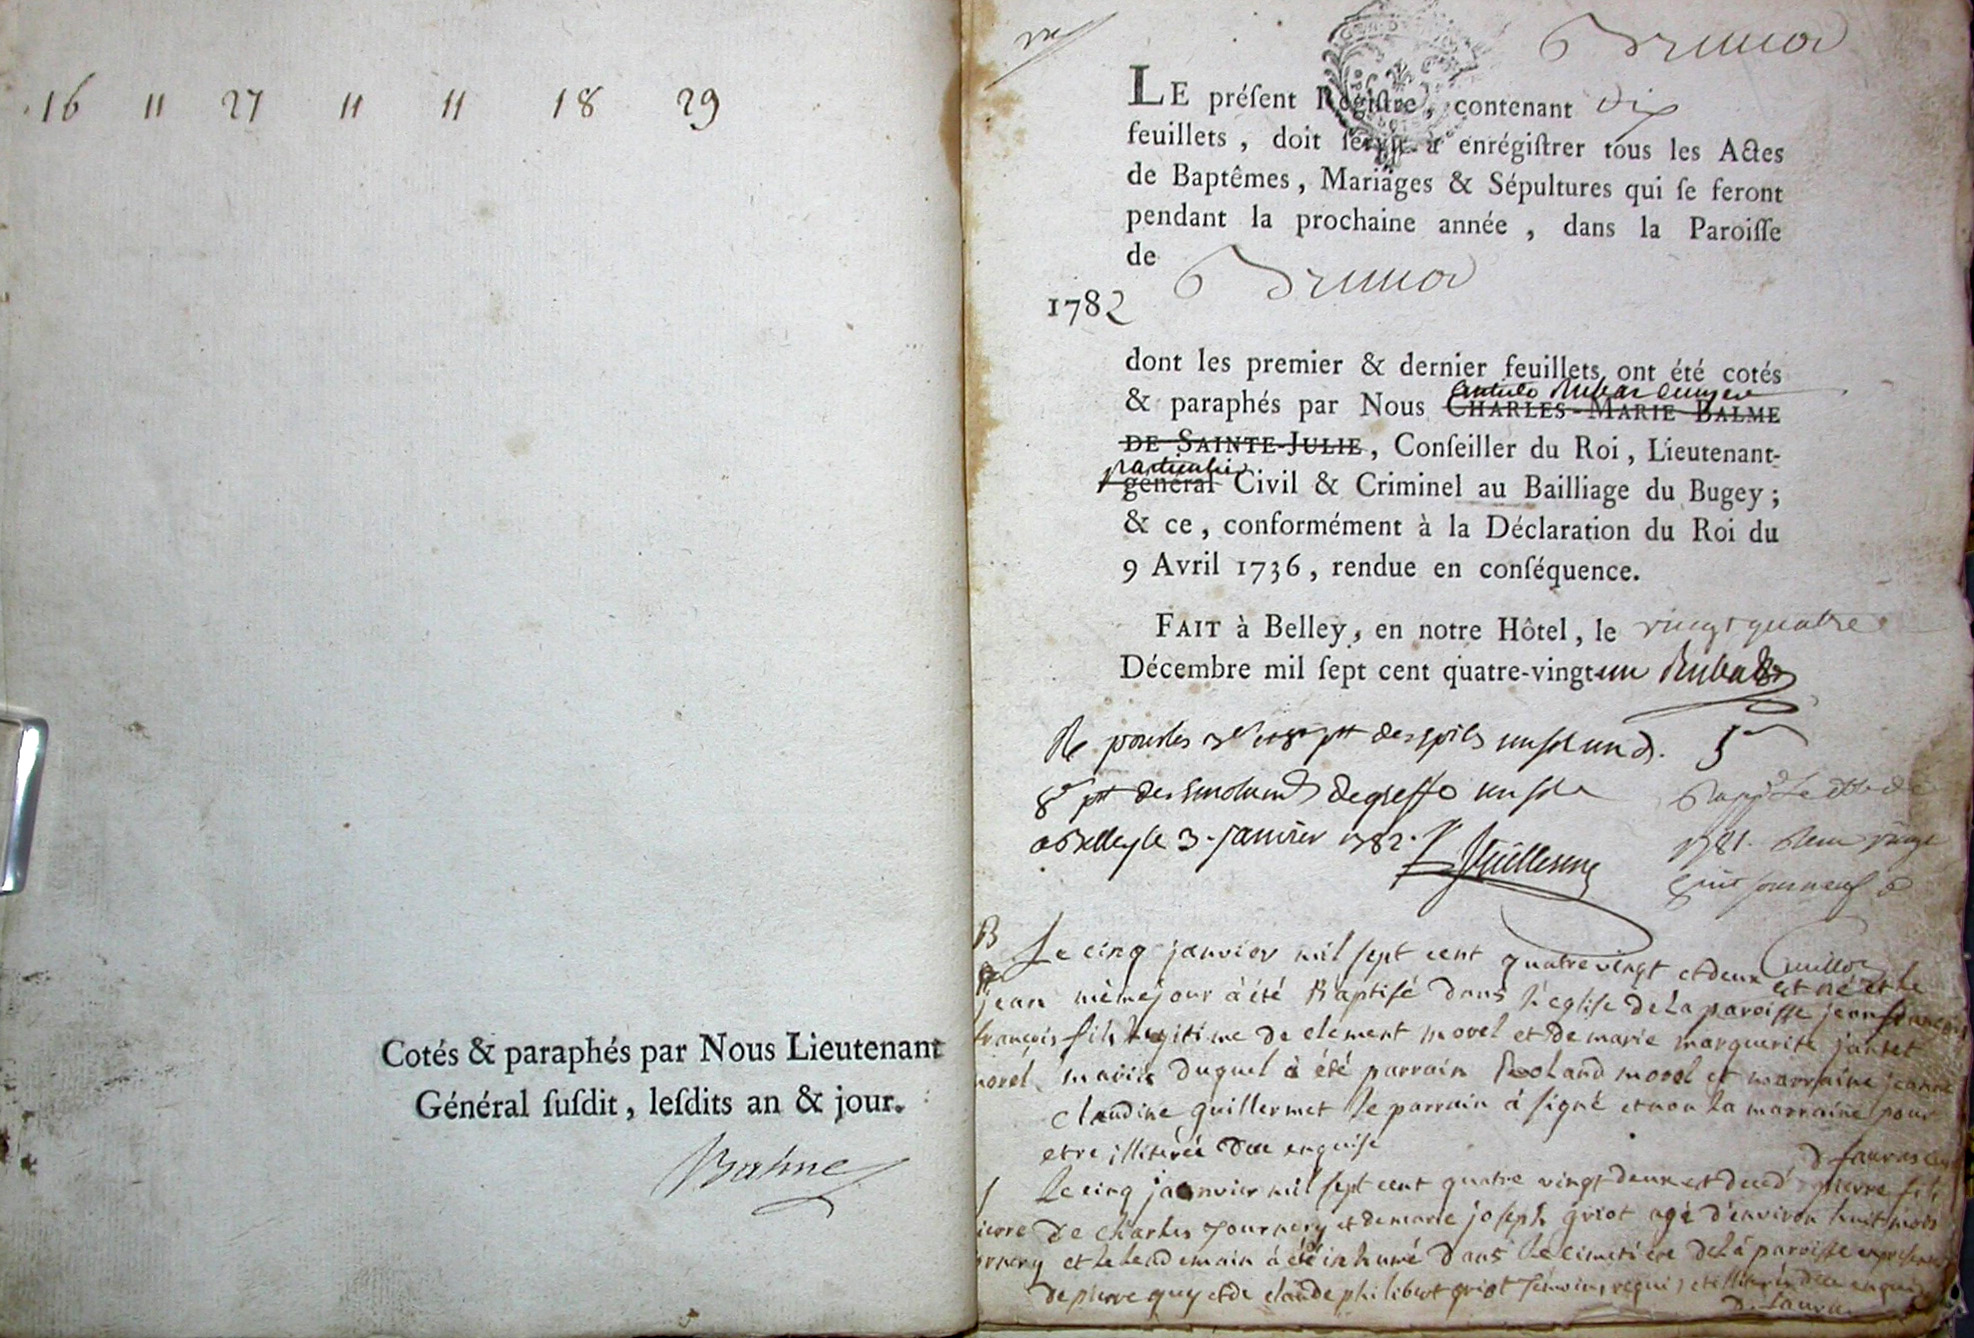 16 11 27 11 11 18 29
Cotés & paraphés par Nous Lieutenant
Général ſuſdit, leſdits an & jour.
Balme
LE préſent Régiſtre, contenant dix
feuillets, doit ſervir à enrégiſtrer tous les Actes
de Baptêmes, Mariages & Sépultures qui ſe feront
pendant la prochaine année, dans la Paroiſſe
de
1782
dont les premier & dernier feuillets ont été cotés
& paraphés par Nous CHARLES-MARIE BALME
DE SAINTE-JULIE, Conſeiller du Roi, Lieutenant-
particulier
général Civil & Criminel au Bailliage du Bugey;
& ce, conformément à la Déclaration du Roi du
9 Avril 1736, rendue en conſéquence.
FAIT à Belley, en notre Hôtel, le vingt quatre
Décembre mil ſept cent quatre-vingt-un
a Belley le 3. janvier 1782.
1781.
B
Le cinq janvier mil sept cent quatre vingt et deux est né et le
jean même jour à été Baptisé dans l'eglise de la paroisse jean françois
françois fils legitime de clement morel et de marie marguerite jantet
morel mariés duquel à été parrain Roland morel et marraine jeanne
claudine guillermet le parrain à signé et non la marraine pour
etre illiterée due enquise
S Le cinq janvier mil sept cent quatre vingt deux est decedé pierre fils
pierre de charles journery et de marie joseph griot agé d'environ huit mois
et le lendemain à été inhumé dans le cimetière de la paroisse en presence
de pierre guy et de claude philibert griot temoins requis et illiterés